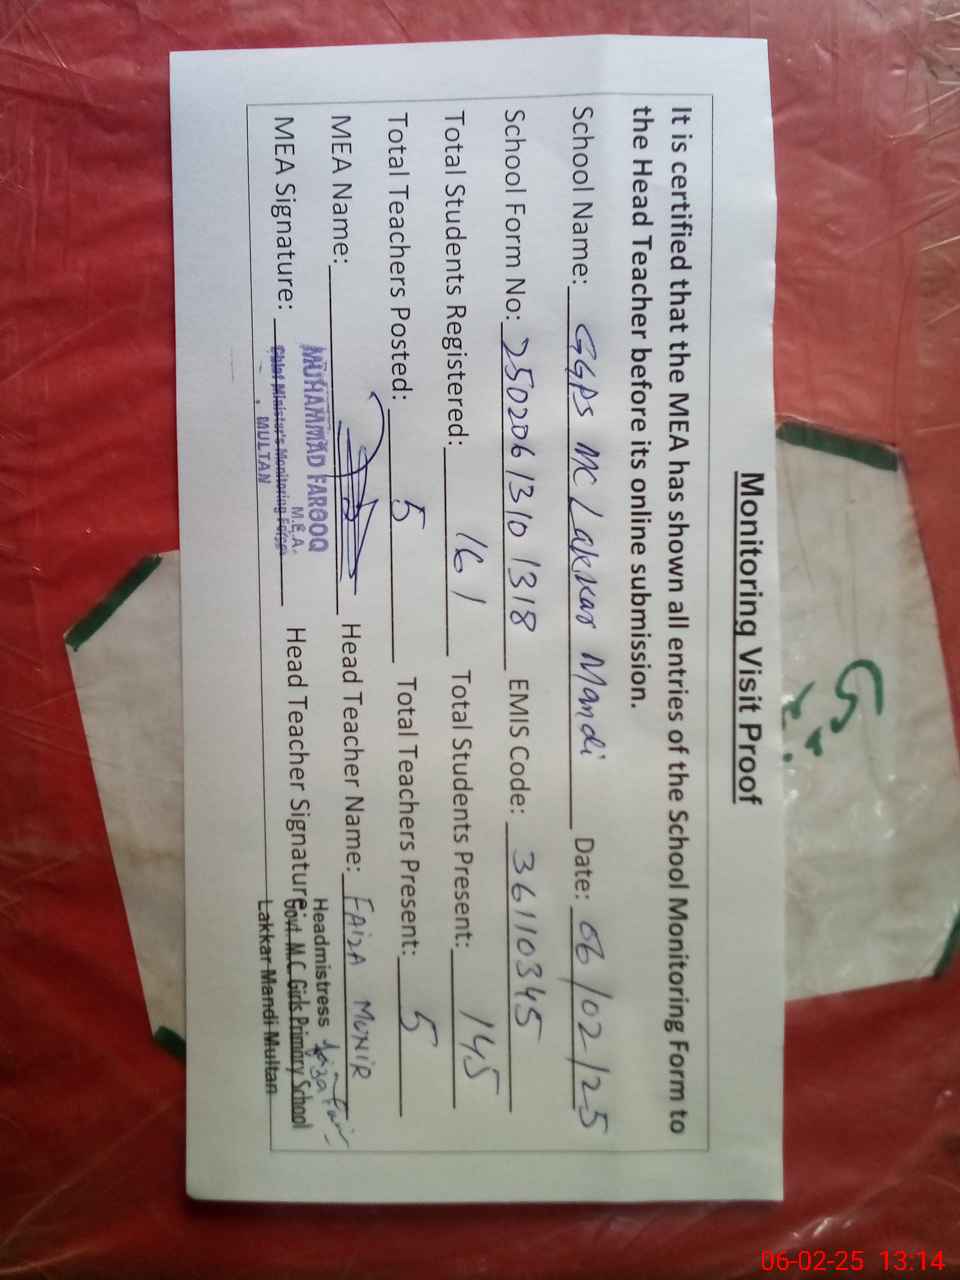 Monitoring Visit Proof
It is certified that the MEA has shown all entries of the School Monitoring Form to
the Head Teacher before its online submission.
School Name: GGPS MC Lakkar Mandi Date: 06/02/25
School Form No: 2502061310 1318 EMIS Code: 36110345
Total Students Registered: 161 Total Students Present: 145
Total Teachers Posted: 5 Total Teachers Present: 5
MEA Name: Head Teacher Name: FAIZA MUNIR
MEA Signature: Head Teacher Signature:
MUHAMMAD FAROOQ
M.E.A.
Chief Minister's Monitoring Force
MULTAN
Headmistress
Govt. M.C. Girls Primary School
Lakkar Mandi Multan
06-02-25 13:14